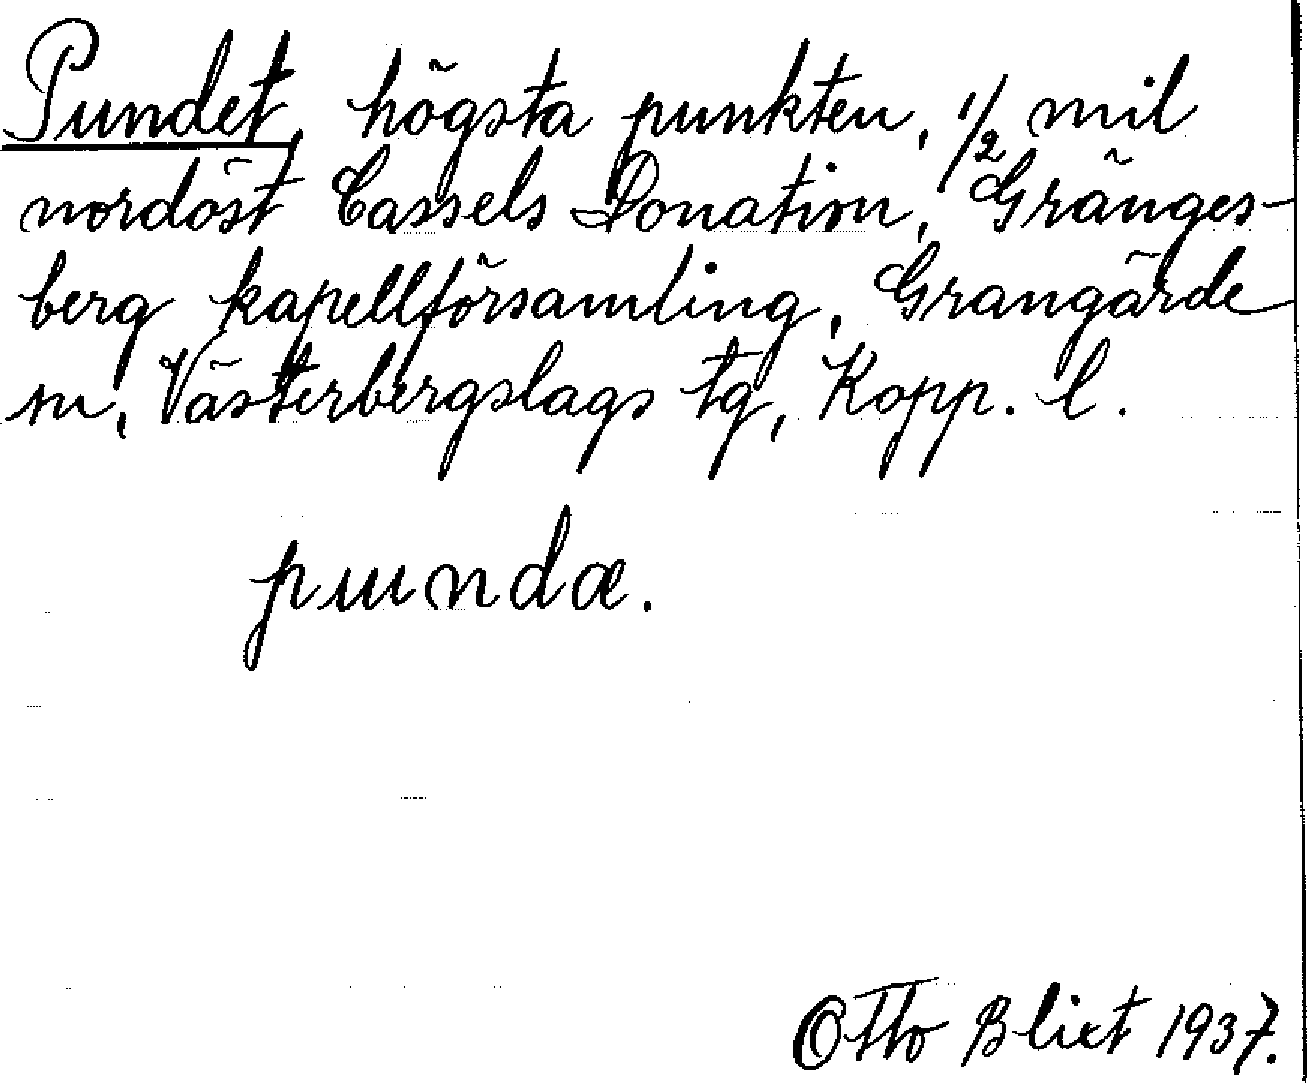 Pundet, högsta punkten, 1/2 mil
nordöst Cassels Donation, Gränges-
berg kapellförsamling, Grangärde
sn, Västerbergslags tg, Kopp. l.
pundæ.
Otto Blixt 1937.